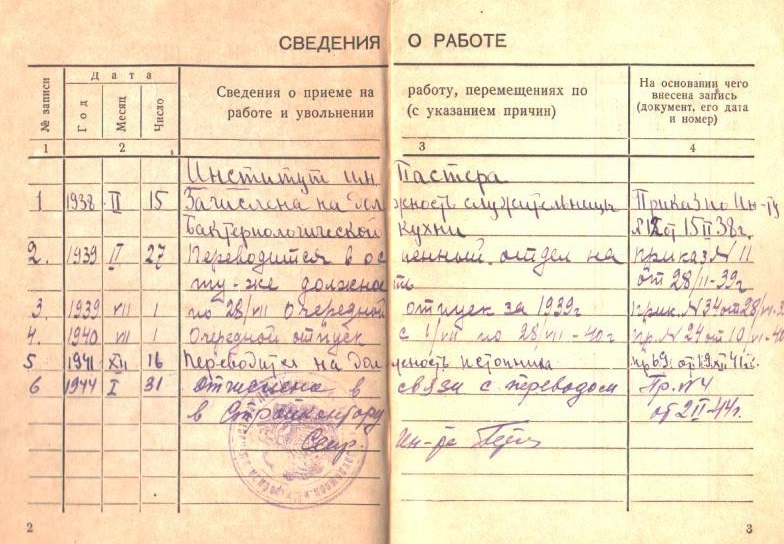 СВЕДЕНИЯ О РАБОТЕ
№ записи
Дата
Год
Месяц
Число
Сведения о приеме на работу, перемещениях по
работе и увольнении (с указанием причин)
На основании чего
внесена запись
(документ, его дата
и номер)
1 2 3 4
Институт им. Пастера
1 1938 II 15 Зачислена на должность служительницы Приказ по Ин-ту
Бактериологической кухни №12 от 15 II 38г.
2. 1939 II 27 Переводится в оспенный отдел на приказ N 11
ту-же должность от 28/II-39г
3. 1939 VII 1 по 28/VII очередной отпуск за 1939г прик. N 34 от 28/VI-
4. 1940 VII 1 Очередной отпуск с 1/VII по 28/VII-40г пр. N 24 от 19/VI-40
5 1941 XII 16 Переводится на должность истопника пр 69. от 19 XII 41г.
6 1944 I 31 Отчислена в связи с переводом Пр. N4
в Стройконтору от 2 II-44г.
Секр. Ин-та
2
3